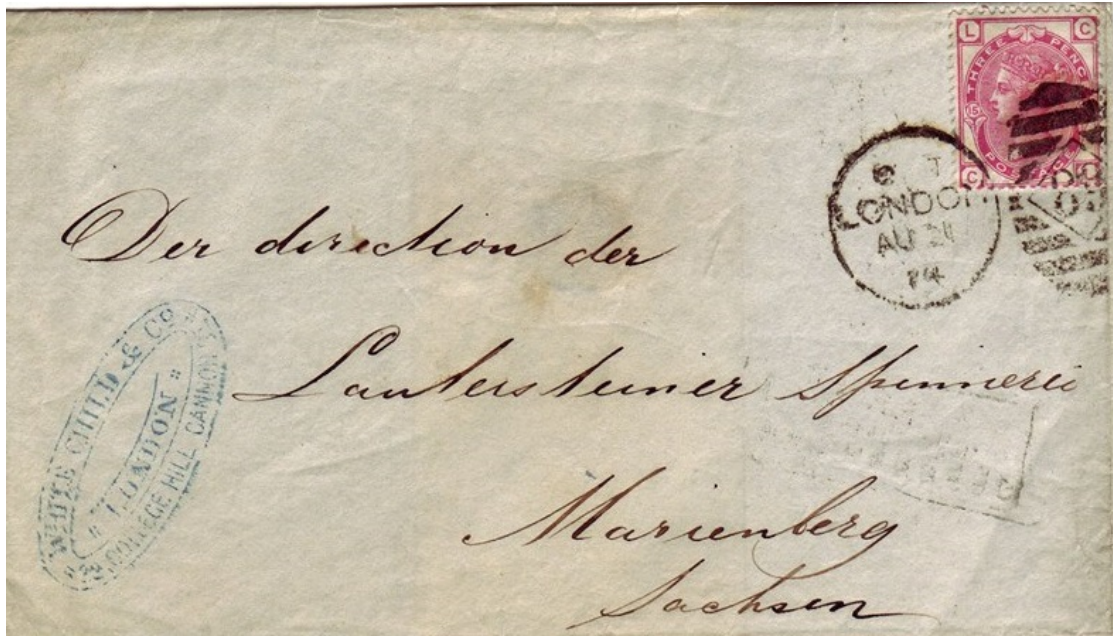 L C
THREE PENCE
15
POSTAGE
C
LONDON
AU 21
74
Der direction der
Lautersteiner Spinnerei
Marienberg
Sachsen
WHITE CHILD & Co
LONDON
COLLEGE HILL CANNON ST